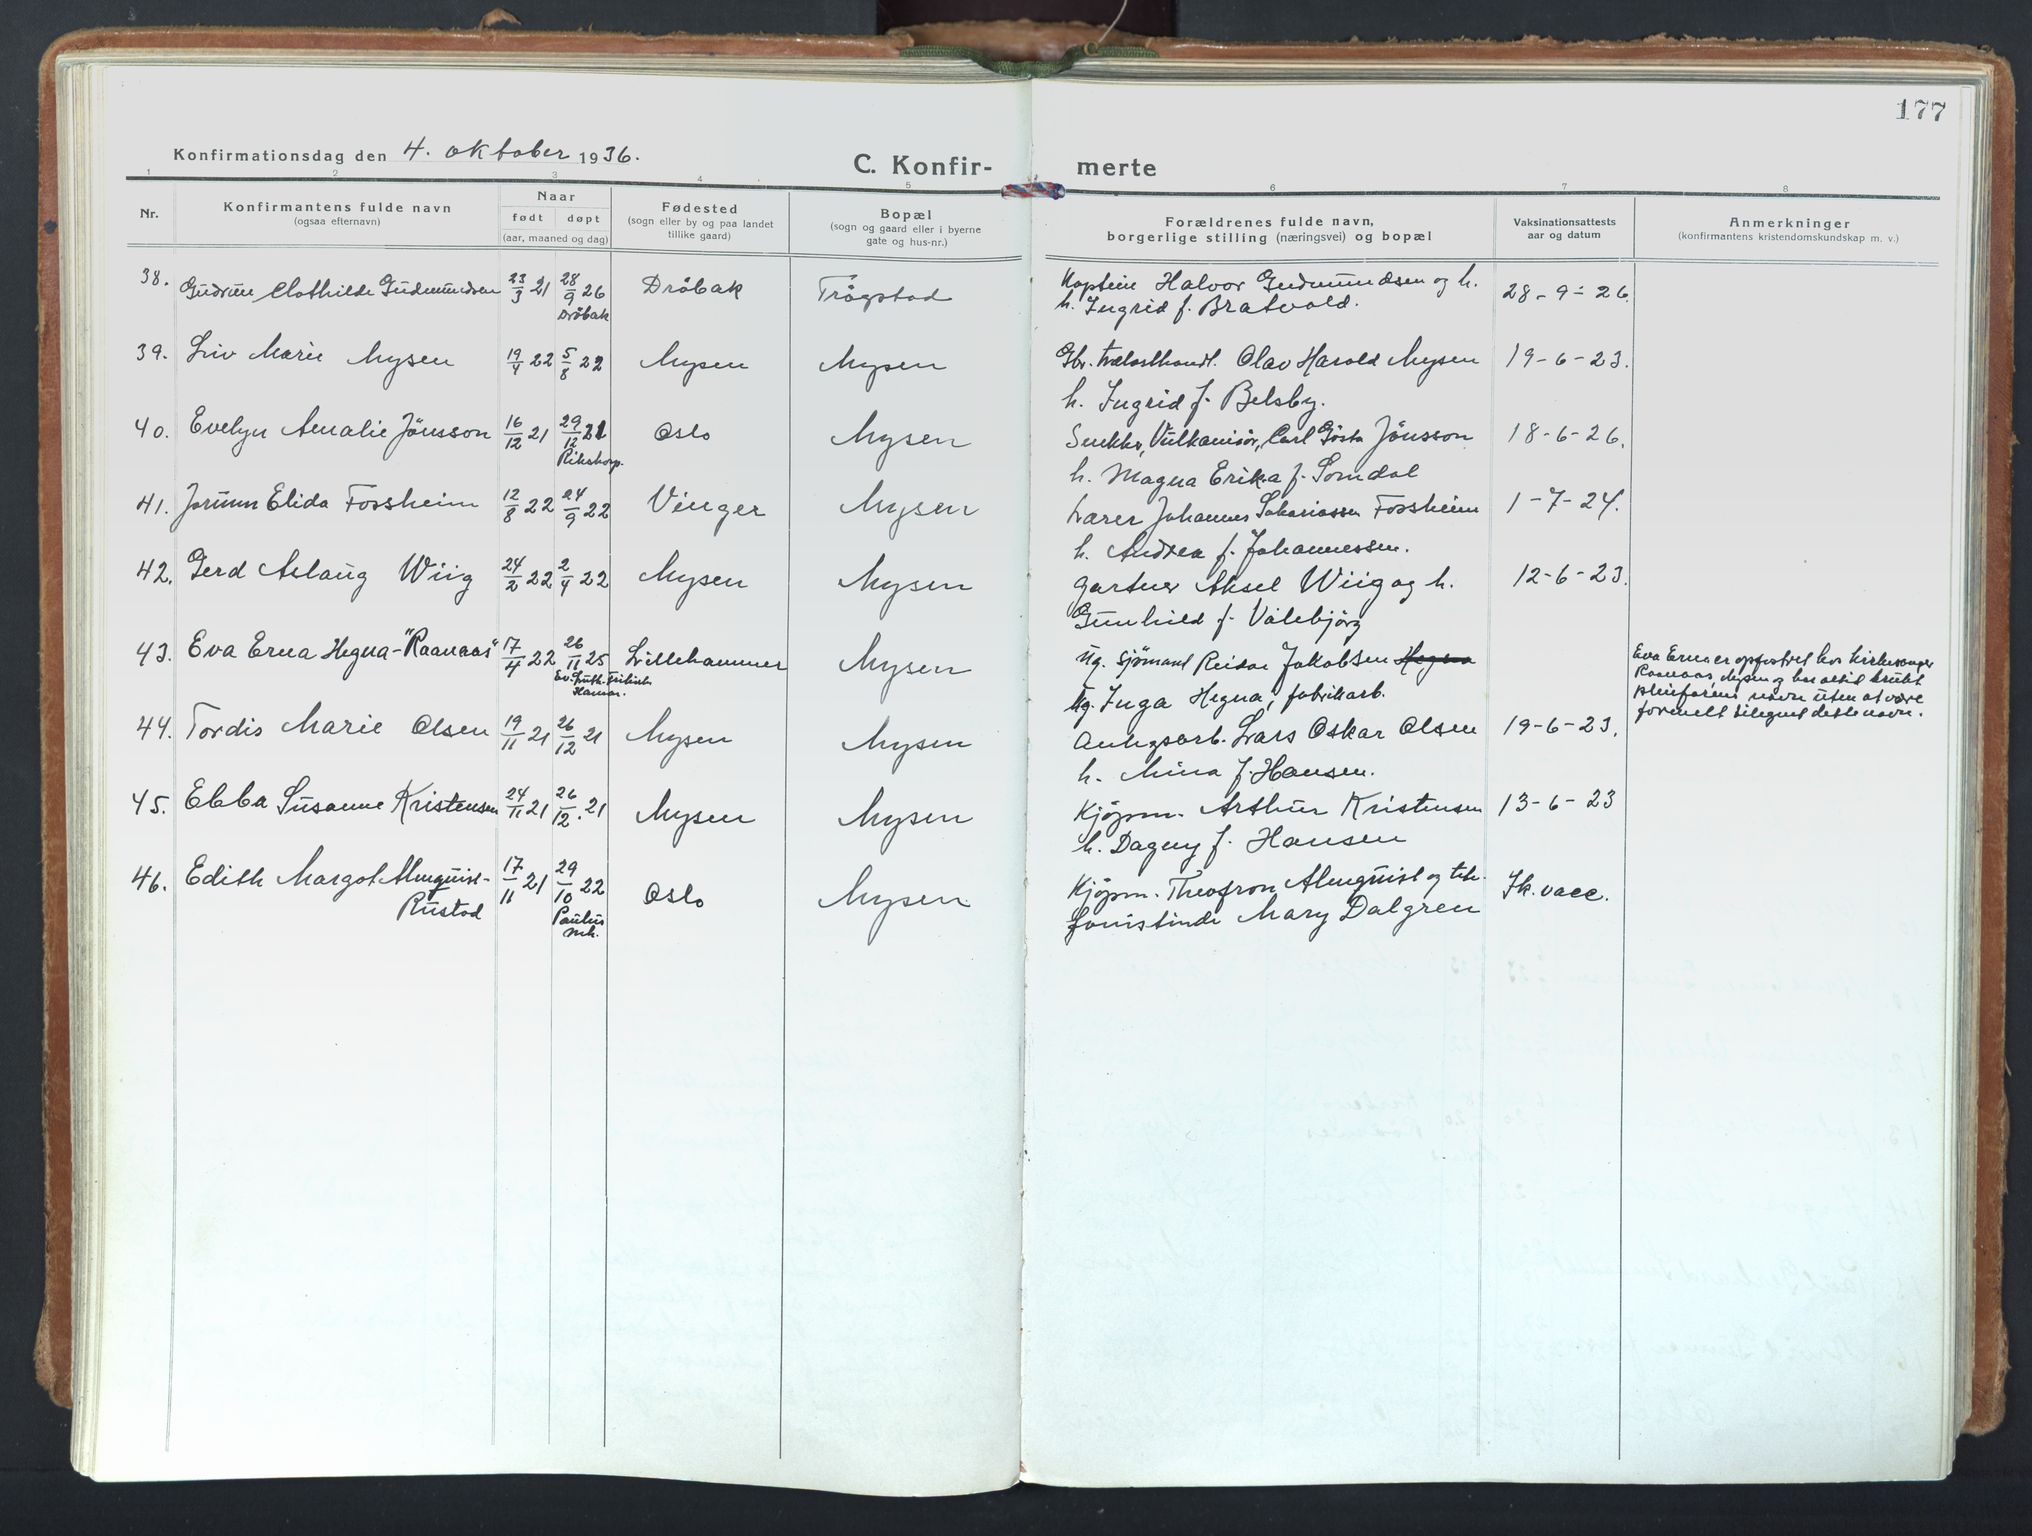 177
Konfirmationsdag den 4. oktober 1936.
C. Konfir- merte
1 2 3 4 5 6 7 8
Nr.
Konfirmantens fulde navn
(ogsaa efternavn)
Naar
født døpt
(aar, maaned og dag)
Fødested
(sogn eller by og paa landet
tillike gaard)
Bopæl
(sogn og gaard eller i byerne
gate og hus-nr.)
Forældrenes fulde navn,
borgerlige stilling (næringsvei) og bopæl
Vaksinationsattests
aar og datum
Anmerkninger
(konfirmantens kristendomskundskap m. v.)
38. Gudrun Clothilde Gudmundsen 23/3 21 28/9 26 Drøbak Trøgstad Kaptein Halvor Gudmundsen og h. 28-9-26.
Drøbak h. Ingrid f. Bratvold.
39. Liv Marie Mysen 19/4 22 5/8 22 Mysen Mysen Gbr. trælasthandl. Olav Harald Mysen 19-6-23.
h. Ingrid f. Belsby.
40. Evelyn Amalie Jönsson 16/12 21 29/12 21 Oslo Mysen Vulkanisör, Carl Gösta Jönsson 18-6-26.
Rikshosp. h. Magna Erika f. Somdal
41. Jorunn Elida Fossheim 12/8 22 24/9 22 Vinger Mysen Lærer Johannes Sakariassen Fossheim 1-7-24.
h. Andrea f. Johannessen.
42. Gerd Aslaug Wiig 24/2 22 2/4 22 Mysen Mysen gartner Aksel Wiig og h. 12-6-23.
Gunhild f. Valebjørg
43. Eva Erna Hegna-"Raanaas" 17/4 22 26/11 25 Lillehammer Mysen Ug. sjömand Reidar Jakobsen Hegna
Ev. Luth. frikirke
Hamar.
Ug. Inga Hegna, fabrikarb.
Eva Erna er opfostret hos kirkesanger
Raanaas, Mysen og har altid brukt
pleiefarens navn uten at være
formelt tilegnet dette navn.
44. Tordis Marie Olsen 19/11 21 26/12 21 Mysen Mysen Anlegsarb. Lars Oskar Olsen 19-6-23.
h. Mina f. Hansen.
45. Ebba Susanne Kristensen 24/11 21 26/12. 21 Mysen Mysen Kjöpm. Arthur Kristensen 13-6-23
h. Dagny f. Hansen
46. Edith Margot Almquist- 17/11 21 29/10 22 Oslo Mysen. Kjöpm. Theofron Almquist og tele- Ik. vacc.
Rustad Paulus
mh.
fonistinde Mary Dalgren